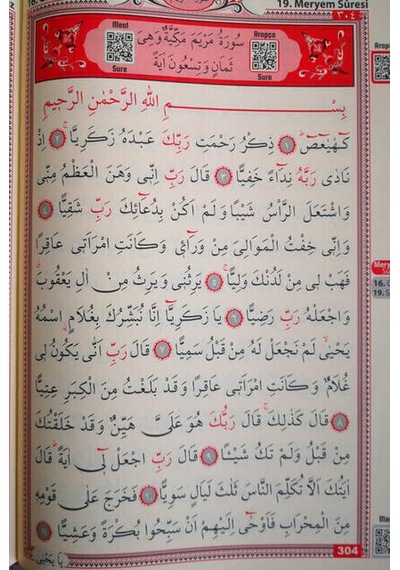 19. Meryem Sûresi
٣٠٤
Meal
Sure
سُورَةُ مَرْيَمَ مَكِّيَّةٌ وَهِىَ
ثَمَانٍ وَتِسْعُونَ اٰيَةً
Arapça
Sure
بِسْمِ اللهِ الرَّحْمٰنِ الرَّحِيمِ
كٓهٰيٰعٓصٓ ﴿١﴾ ذِكْرُ رَحْمَتِ رَبِّكَ عَبْدَهُ زَكَرِيَّا ﴿٢﴾ اِذْ
نَادٰى رَبَّهُ نِدَٓاءً خَفِيًّا ﴿٣﴾ قَالَ رَبِّ اِنّٖى وَهَنَ الْعَظْمُ مِنّٖى
وَاشْتَعَلَ الرَّأْسُ شَيْبًا وَلَمْ اَكُنْ بِدُعَٓائِكَ رَبِّ شَقِيًّا ﴿٤﴾
وَاِنّٖى خِفْتُ الْمَوَالِىَ مِنْ وَرَٓاءٖى وَكَانَتِ امْرَاَتٖى عَاقِرًا
فَهَبْ لٖى مِنْ لَدُنْكَ وَلِيًّا ﴿٥﴾ يَرِثُنٖى وَيَرِثُ مِنْ اٰلِ يَعْقُوبَ
وَاجْعَلْهُ رَبِّ رَضِيًّا ﴿٦﴾ يَا زَكَرِيَّٓا اِنَّا نُبَشِّرُكَ بِغُلَامٍ اسْمُهُ
يَحْيٰى لَمْ نَجْعَلْ لَهُ مِنْ قَبْلُ سَمِيًّا ﴿٧﴾ قَالَ رَبِّ اَنّٰى يَكُونُ لٖى
غُلَامٌ وَكَانَتِ امْرَاَتٖى عَاقِرًا وَقَدْ بَلَغْتُ مِنَ الْكِبَرِ عِتِيًّا
﴿٨﴾ قَالَ كَذٰلِكَ قَالَ رَبُّكَ هُوَ عَلَىَّ هَيِّنٌ وَقَدْ خَلَقْتُكَ
مِنْ قَبْلُ وَلَمْ تَكُ شَيْـًٔا ﴿٩﴾ قَالَ رَبِّ اجْعَلْ لٖٓى اٰيَةً قَالَ
اٰيَتُكَ اَلَّا تُكَلِّمَ النَّاسَ ثَلٰثَ لَيَالٍ سَوِيًّا ﴿١٠﴾ فَخَرَجَ عَلٰى قَوْمِهٖ
مِنَ الْمِحْرَابِ فَاَوْحٰٓى اِلَيْهِمْ اَنْ سَبِّحُوا بُكْرَةً وَعَشِيًّا ﴿١١﴾
304
يَا يَحْيٰى